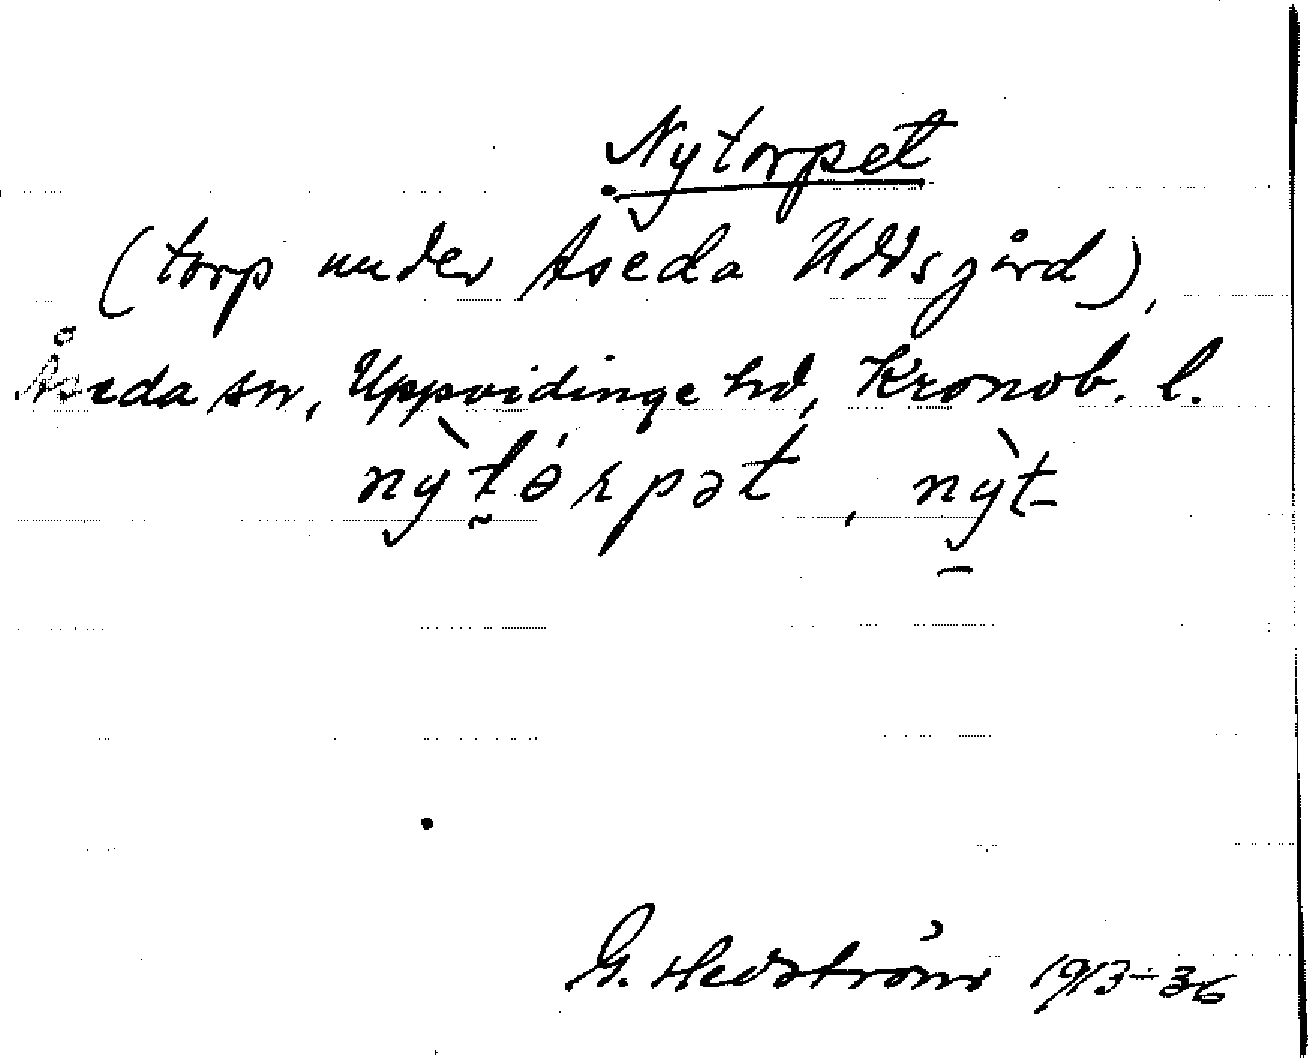 Nytorpet
(torp under Åseda Uddsgård),
Åseda sn, Uppvidinge hd, Kronob. l.
nỳtɵ́rpət, nỳt-
G. Hedström 1913-36